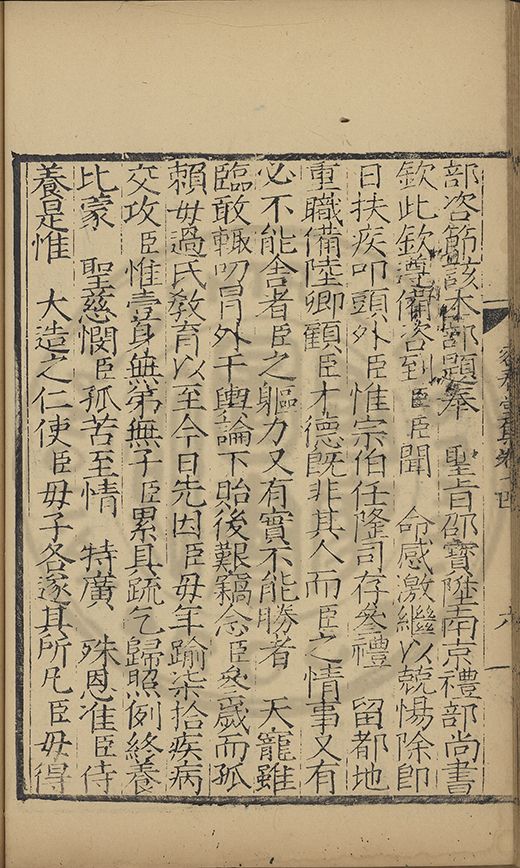 部咨節該本部題奉　聖旨邵寶陞南京禮部尚書
欽此欽遵備咨到臣臣聞　命感激繼以兢惕除即
日扶疾叩頭外臣惟宗伯任隆司存叅禮　留都地
重職備陸卿顧臣才德既非其人而臣之情事又有
必不能舍者臣之軀力又有實不能勝者　天寵雖
臨敢輒叨冒外干輿論下貽後艱竊念臣叄歲而孤
賴母過氏敎育以至今日先因臣母年踰柒拾疾病
交攻臣惟壹身無弟無子臣累具疏乞歸照例終養
比蒙　聖慈憫臣孤苦至情　特廣　殊恩准臣侍
養是惟　大造之仁使臣母子各遂其所凡臣母得
容春堂
卷十四
六